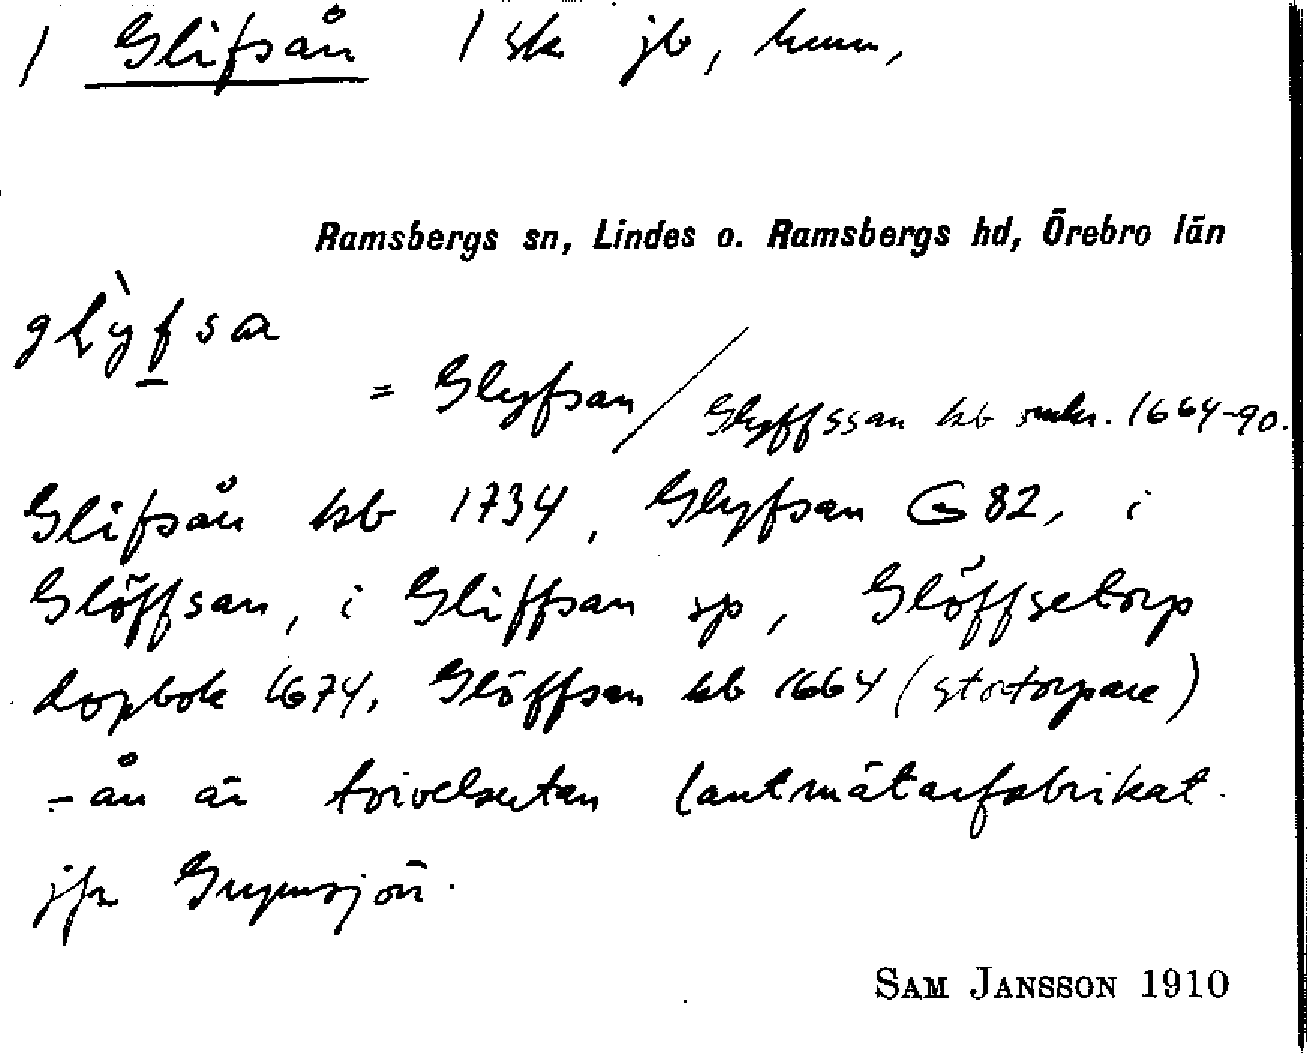 / Glifsån / sk jb, hmn,
Ramsbergs sn, Lindes o. Ramsbergs hd, Örebro län
glỳfsa
= Glyfsan / Glyffssan kb 1664-90.
Glifsån kb 1734, Glyfsan G 82, i
Glöffsan, i Gliffsan sp, Glöffsetorp
dopbok 1674, Glöffsan kb 1664 (stortorpare)
-ån är tvivelsutan lantmätarfabrikat.
jfr Grymsjön.
SAM JANSSON 1910